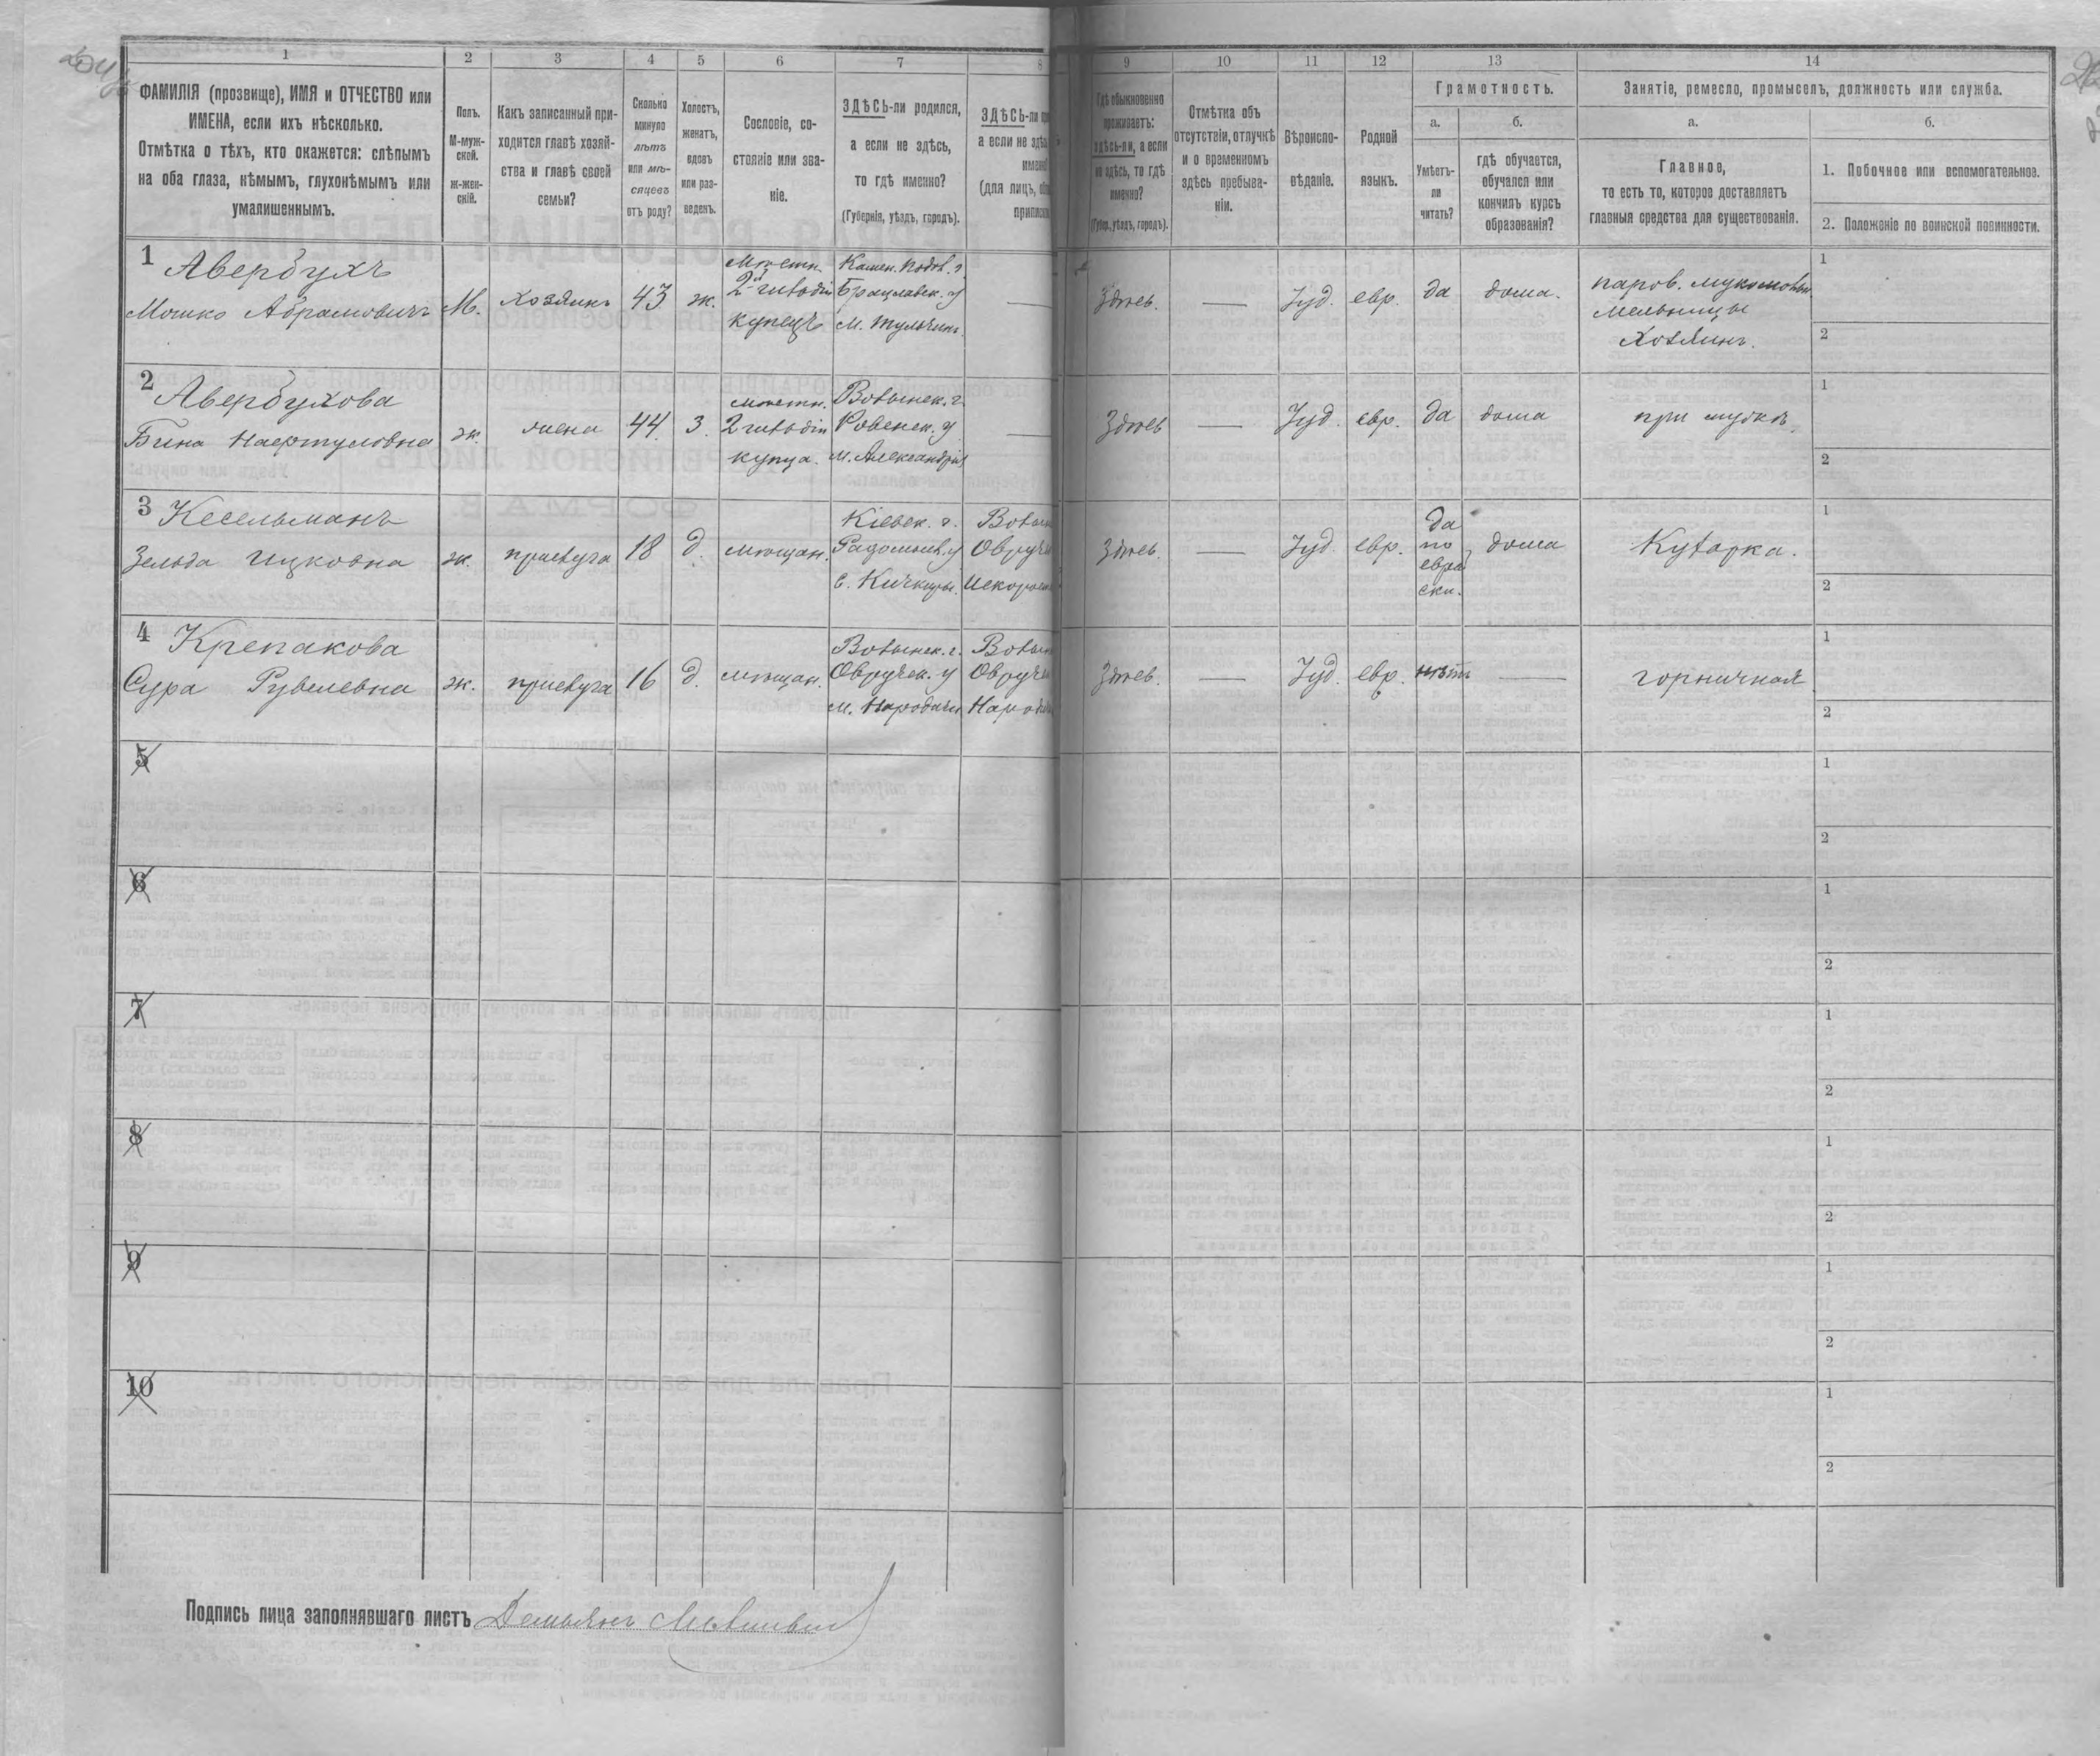 1 2 3 4 5 6 7 8 9 10 11 12 13 14
ФАМИЛІЯ (прозвище), ИМЯ и ОТЧЕСТВО или
ИМЕНА, если ихъ нѣсколько.
Отмѣтка о тѣхъ, кто окажется: слѣпымъ
на оба глаза, нѣмымъ, глухонѣмымъ или
умалишеннымъ.
Полъ.
М-муж-
ской.
ж-жен-
скій.
Какъ записанный при-
ходится главѣ хозяй-
ства и главѣ своей
семьи?
Сколько
минуло
лѣтъ
или мѣ-
сяцевъ
отъ роду?
Холостъ,
женатъ,
вдовъ
или раз-
веденъ.
Сословіе, со-
стояніе или зва-
ніе.
ЗДѢСЬ-ли родился,
а если не здѣсь,
то гдѣ именно?
(Губернія, уѣздъ, городъ).
ЗДѢСЬ-ли
а если не
(для лицъ,
Гдѣ обыкновенно
проживаетъ:
здѣсь-ли, а если
не здѣсь, то гдѣ
именно?
(Губер., уѣздъ, городъ).
Отмѣтка объ
отсутствіи, отлучкѣ
и о временномъ
здѣсь пребыва-
ніи.
Вѣроиспо-
вѣданіе.
Родной
языкъ.
Грамотность.
а.
Умѣетъ-
ли
читать?
б.
гдѣ обучается,
обучался или
кончилъ курсъ
образованія?
Занятіе, ремесло, промыселъ, должность или служба.
а.
Главное,
то есть то, которое доставляетъ
главныя средства для существованія.
б.
1. Побочное или вспомогательное.
2. Положеніе по воинской повинности.
1 Авербухъ
Мошко Абрамовичъ
М.
хозяинъ
43
ж.
2й гильдіи
купецъ
Камен. Подол. г.
Брацлавск. у
м. Тульчинъ
Здѣсь.
—
Іуд.
евр.
да
дома.
паров. мукомольн.
мельницы
Хозяинъ.
1
2
2 Авербухова
Бина
ж.
жена
44
З.
2 гильдіи
купца.
Волынск. г.
Ровенск. у
м. Александрія
Здѣсь
—
Іуд.
евр.
да
дома
при мужѣ
1
2
3 Кесельманъ
Зельда Ицковна
ж.
прислуга
18
д.
мѣщан.
Кіевск. г.
Радомысл. у
с. Кичкиры.
Волын
Овруч
Искорост
Здѣсь.
—
Іуд.
евр.
да
по
евре
ски.
дома
Кухарка.
1
2
4 Крепакова
Сура Рувелевна
ж.
прислуга
16
д.
мѣщан.
Волынск. г.
Овручск. у
м. Народичи
Волын
Овруч
Народи
Здѣсь.
—
Іуд.
евр.
нѣтъ
—
горничная
1
2
5
1
2
6
1
2
7
1
2
8
1
2
9
1
2
10
1
2
Подпись лица заполнявшаго листъ Демьянъ